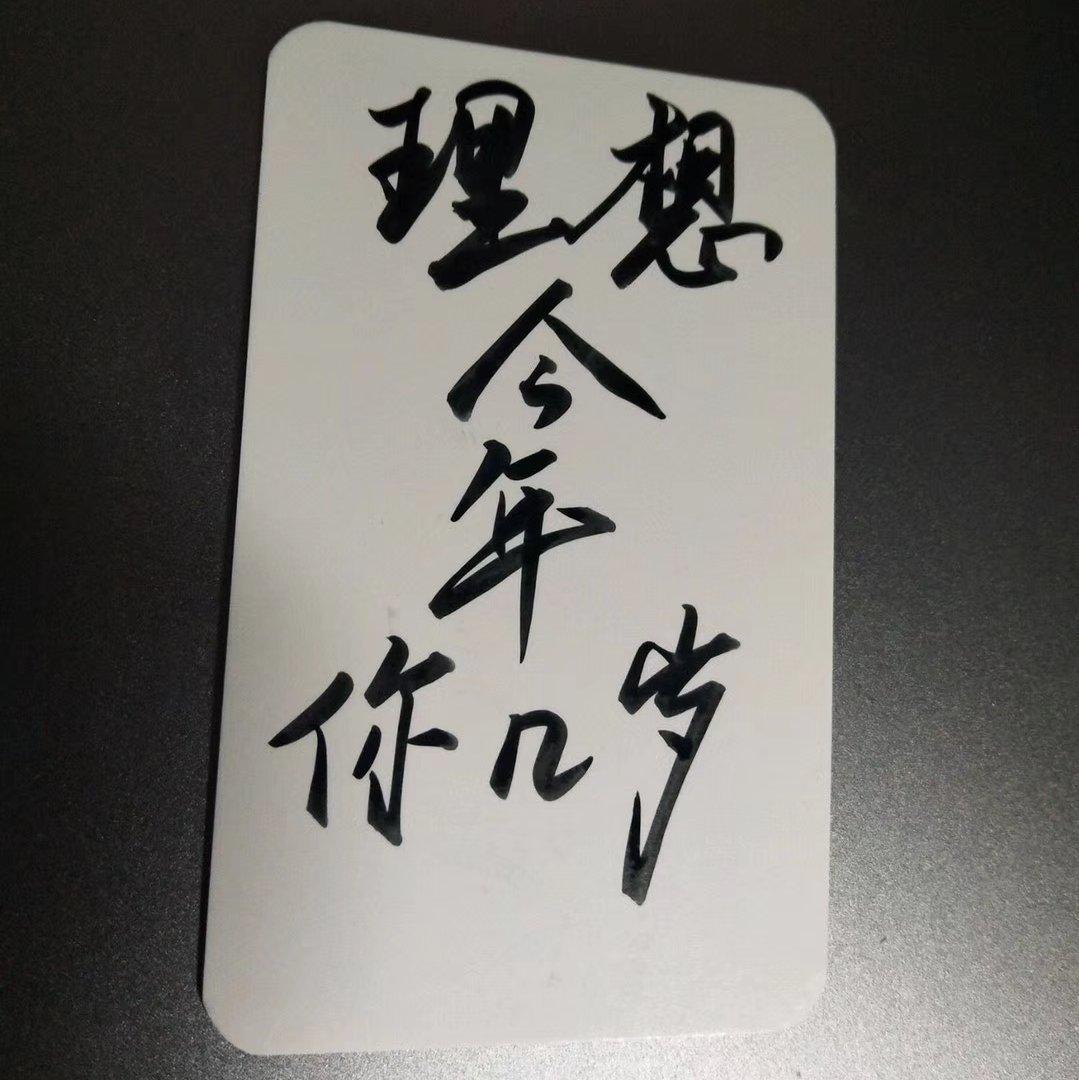 理想
今
年
你几岁